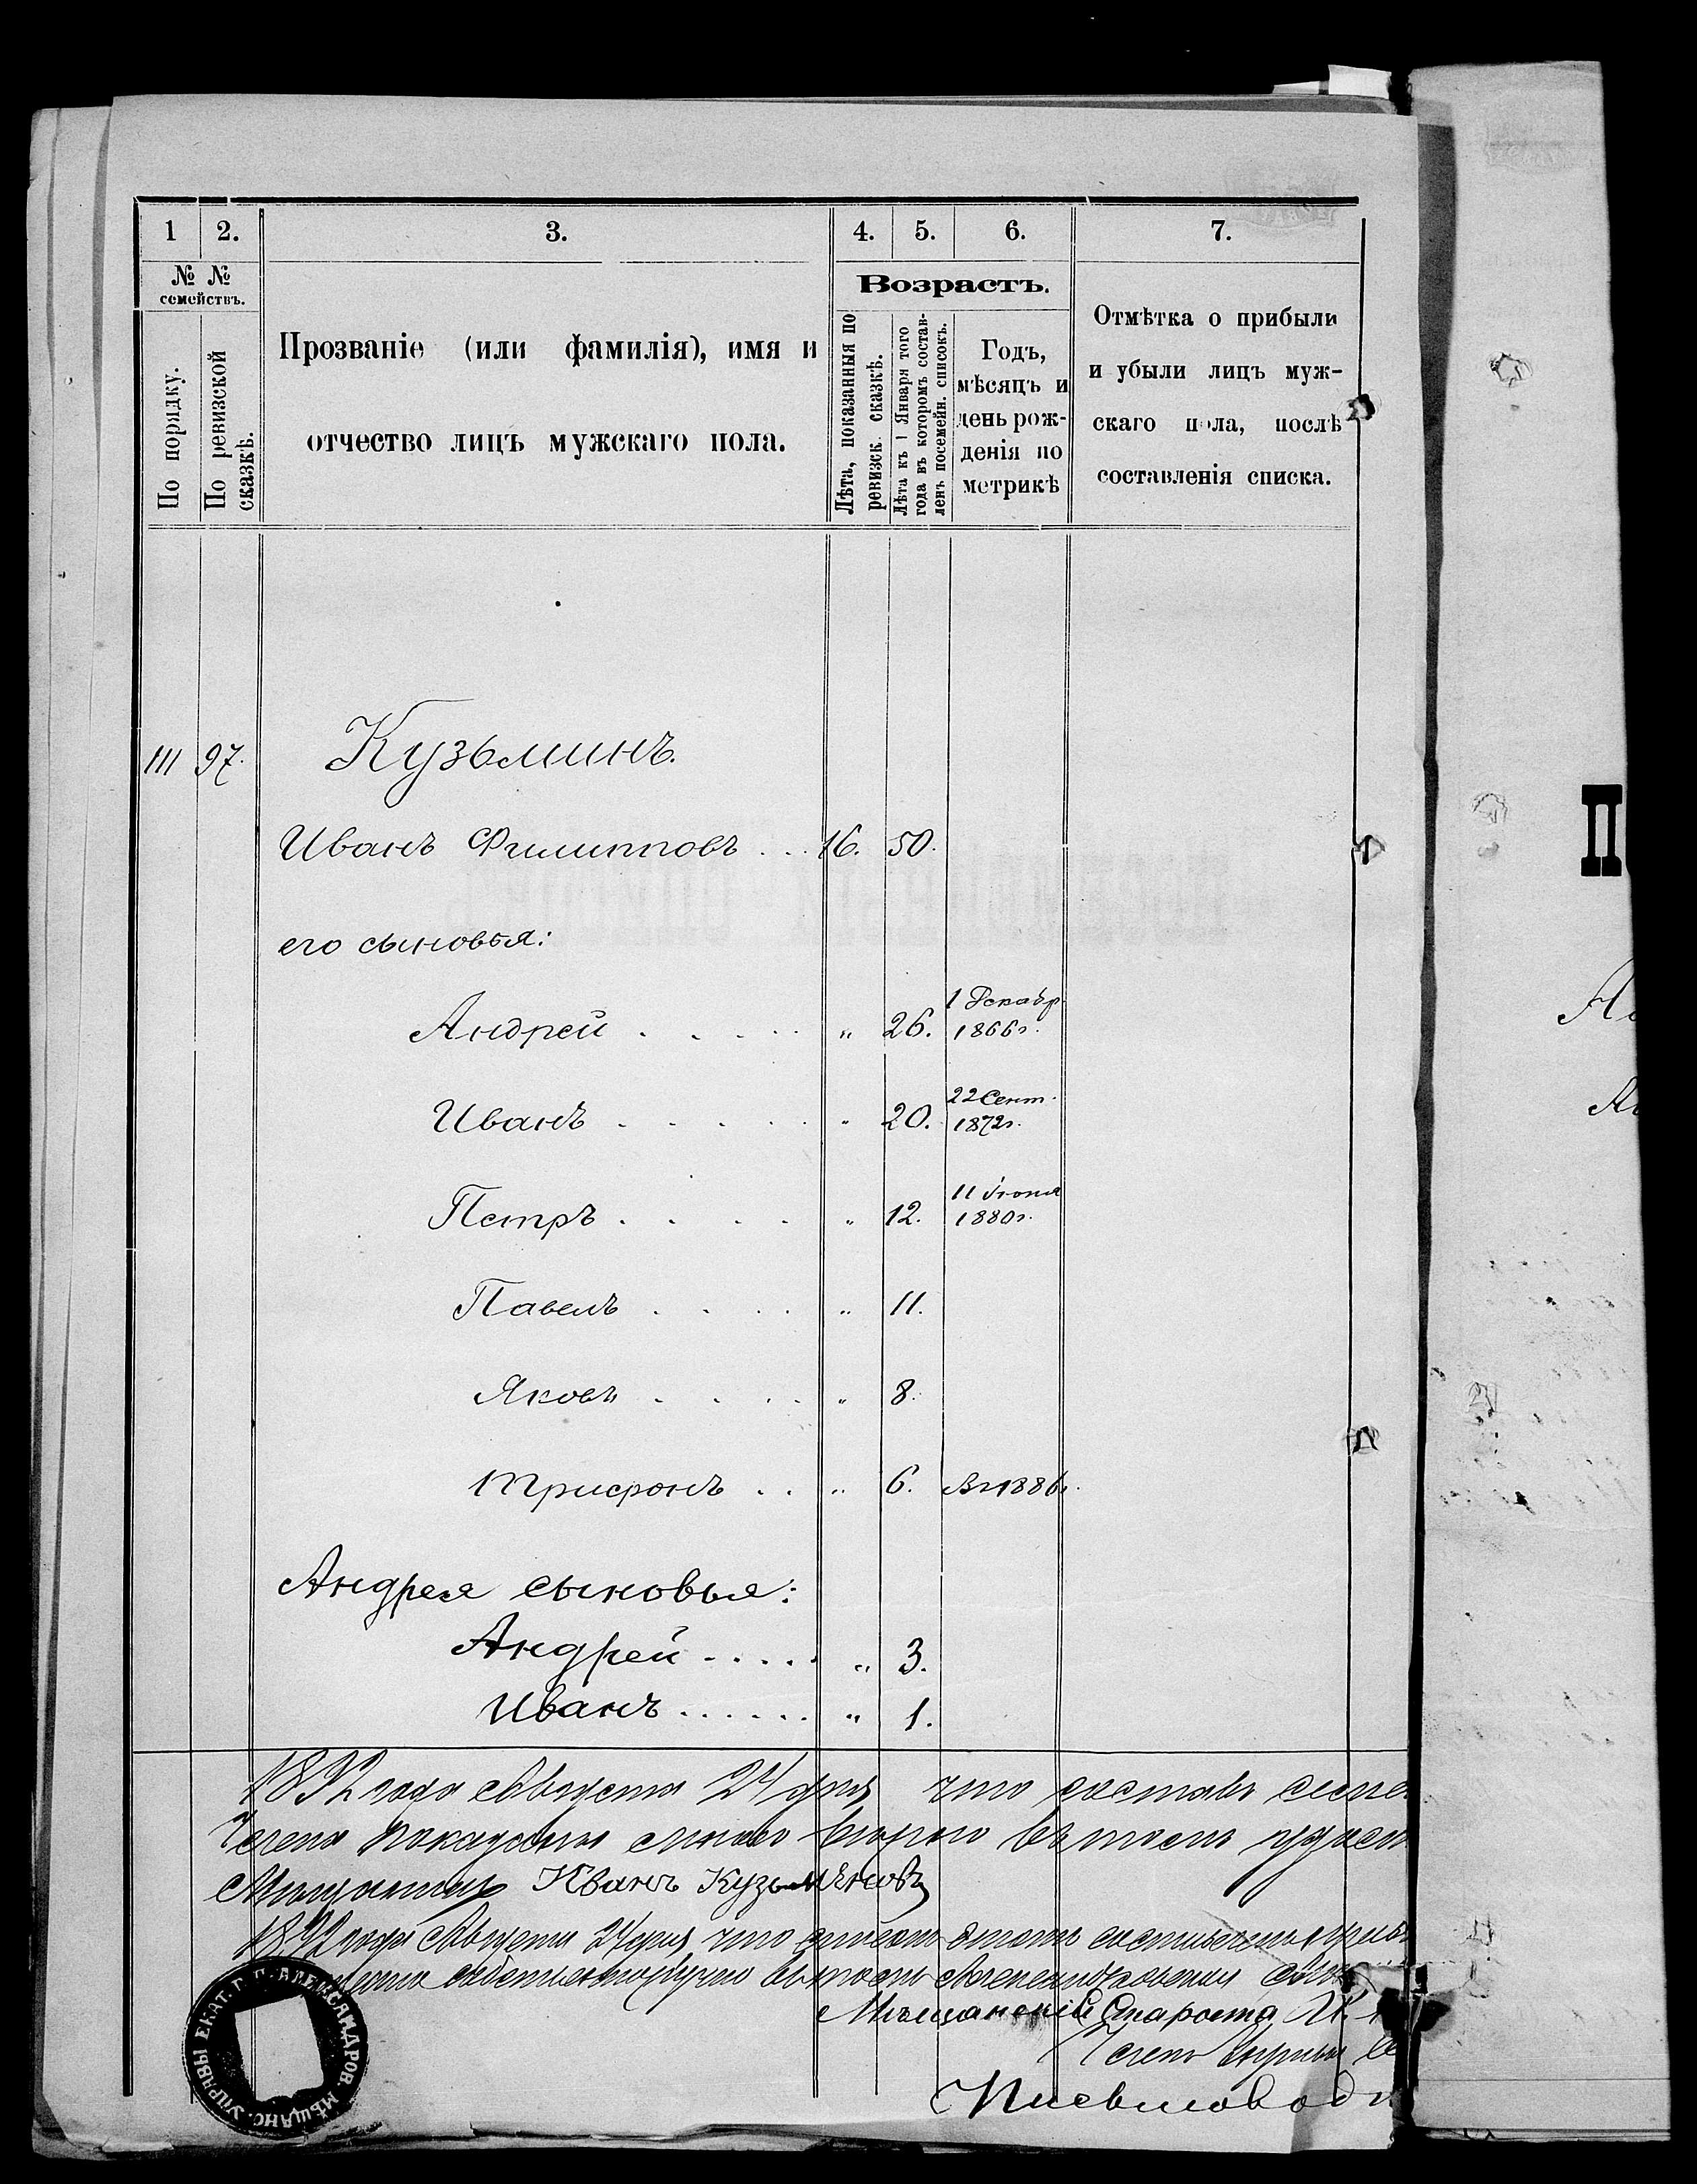 1 2. 3. 4. 5. 6. 7.
№ №
семействъ.
По порядку.
По ревизской
сказкѣ.
Прозваніе (или фамилія), имя и
отчество лицъ мужскаго пола.
Возрастъ.
Лѣта, показанныя по
ревизск. сказкѣ.
Лѣта къ 1 Января того
года въ которомъ состав-
ленъ посемейн. списокъ.
Годъ,
мѣсяцъ и
день рож-
денія по
метрикѣ
Отмѣтка о прибыли
и убыли лицъ муж-
скаго пола, послѣ
составленія списка.
111 97. Кузьминъ.
Иванъ Филипповъ . . . 16. 50.
его сыновья:
Андрей . . . . . „ 26. 1 Декабр. 1866г.
Иванъ . . . . . „ 20. 22 Сент. 1872г.
Петръ . . . . „ 12. 11 Іюня 1880г.
Павелъ . . . . „ 11.
Яковъ . . . . „ 8.
Трифонъ . . „ 6. Въ 1886г.
Андрея сыновья:
Андрей . . . . . „ 3.
Иванъ . . . . . . „ 1.
1892 года Августа 24 дня что составъ
Члена
Иванъ
1892 года Августа 24 дня что
Мѣщанскій Староста
Членъ Управы
Письмовод
ЕКАТ. Г. Г. АЛЕКСАНДРОВ. МѢЩАНС. УПРАВЫ
П